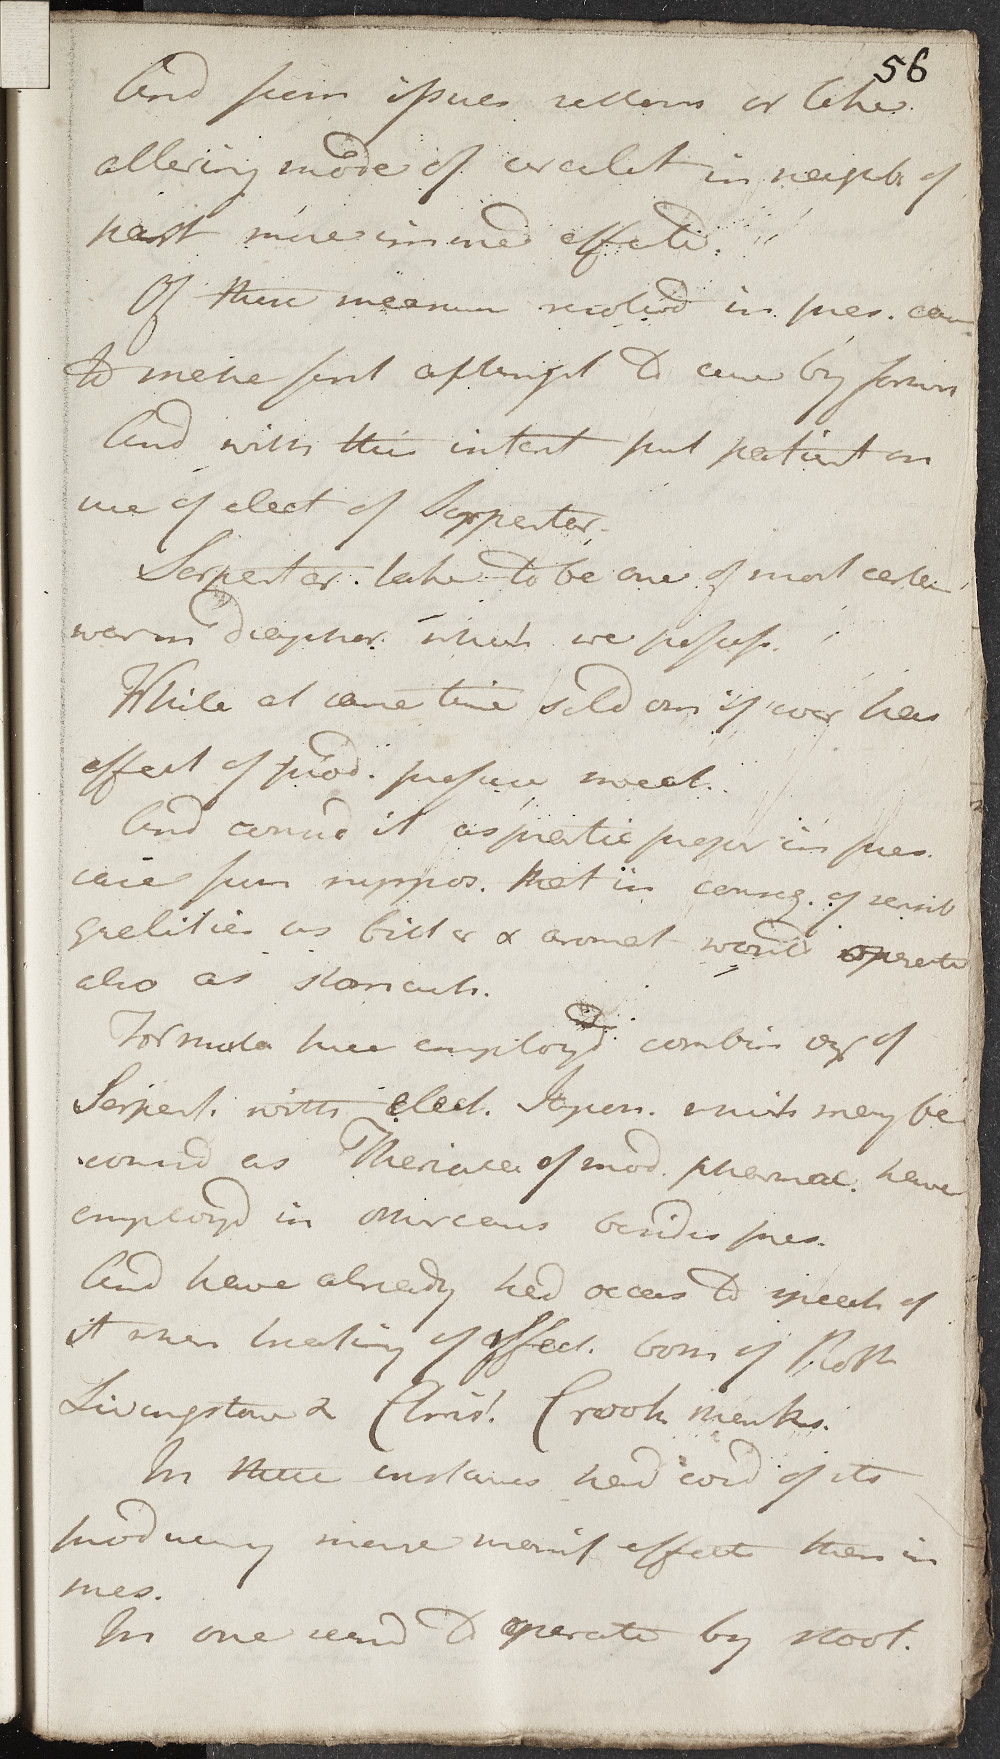 56
And from issues setons or other
altering mode of circulat in neighb of
part more immed effects.
Of these measures resolvd in pres. case
to make first attempt to cure by former
And with this intent put patient on
use of elect of Serpentar.
Serpentar. take to be one of most certain
warm diaphor. which we possess.
While at same time seldom if ever has
effect of prod. profuse sweat.
And considd it as partic proper in pres.
case from suppos. that in conseq. of sensib
qualities as bitter & aromat would operate
also as stomach.
Formula here employd combin of
Serpent. with Elect. Japon. which may be
considd as Theriaca of mod. pharmac. have
employd in other cases besides pres.
And have already had occas to speak of
it when treating of affect. born of Robt
Livingstone & Christ. Crookshanks.
In these instances had evid of its
producing more manif effects than in
pres.
In one seemd to operate by stool.